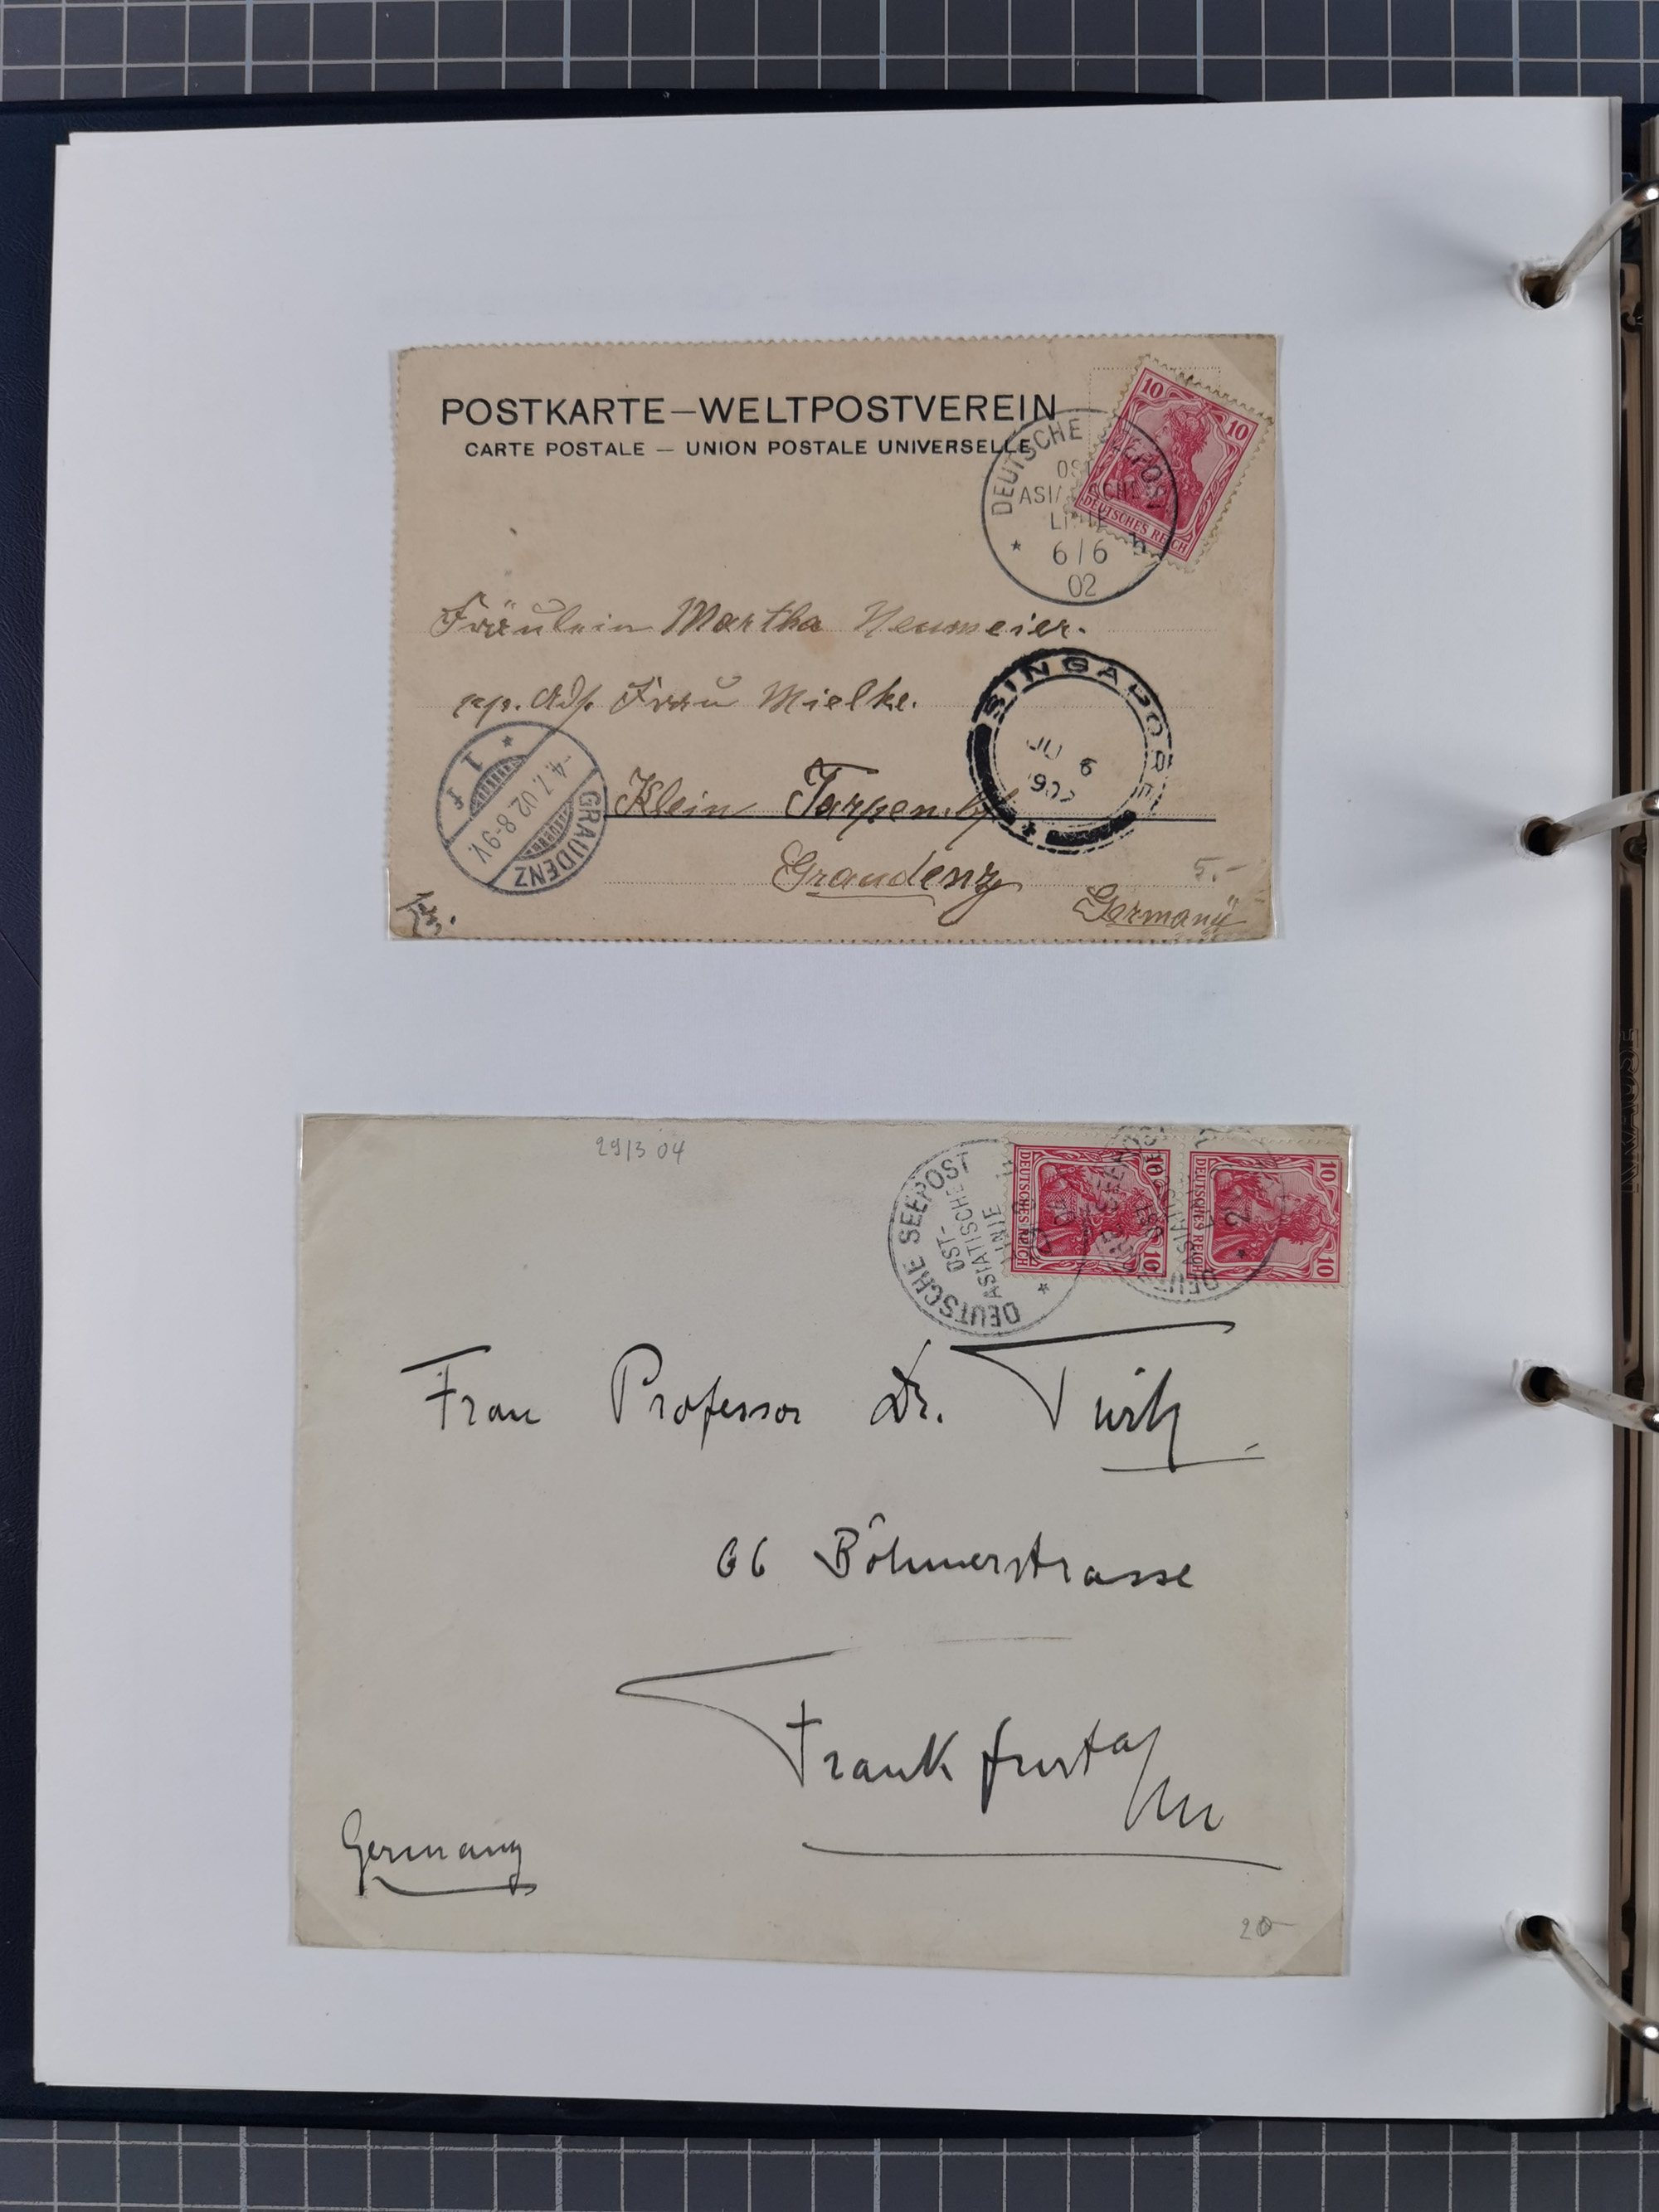 POSTKARTE — WELTPOSTVEREIN
CARTE POSTALE — UNION POSTALE UNIVERSELLE
10 10
DEUTSCHES REICH
DEUTSCHE
ASIATISCHE
LINIE
6/6 h
02
Fräulein Martha Neumeier.
Frau Mielke.
SINGAPORE
JU 6
GRAUDENZ
-4.7.02 8-9V.
1 f
Klein Tarpen by
Graudenz
5.-
Germany
29/3 04
10 10
DEUTSCHES REICH
10 10
DEUTSCHES REICH
DEUTSCHE SEEPOST
OST-
ASIATISCHE
LINIE
Frau Professor Dr.
66 Böhmerstrasse
Frankfurt a/M
Germany
20